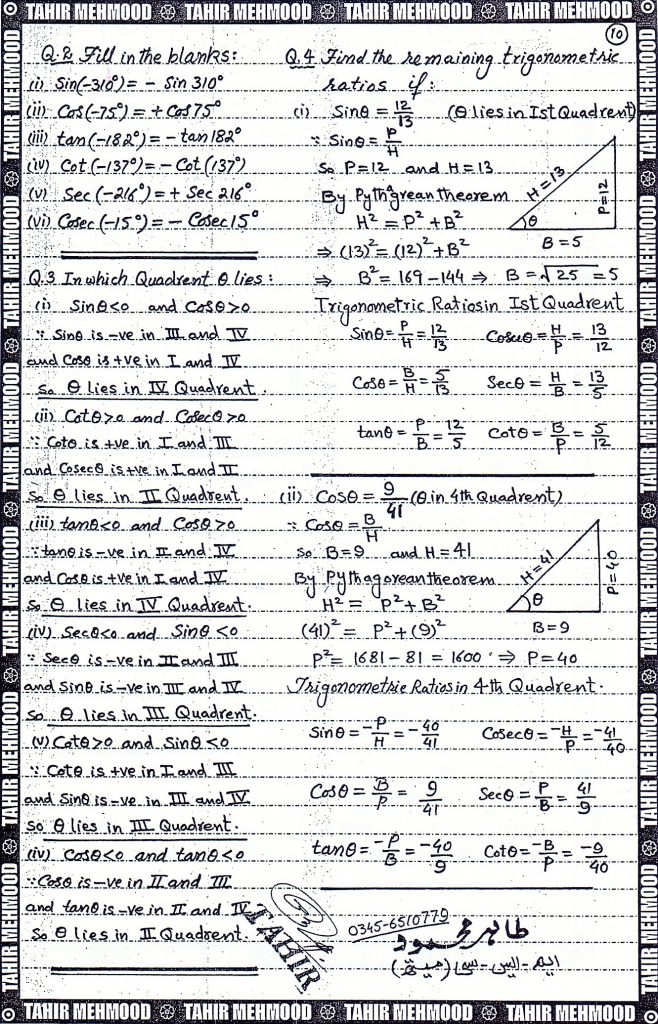 TAHIR MEHMOOD TAHIR MEHMOOD TAHIR MEHMOOD TAHIR MEHMOOD
10
Q.2 Fill in the blanks:
(i) Sin(-310°) = - Sin 310°
(ii) Cos(-75°) = + Cos 75°
(iii) tan(-182°) = - tan 182°
(iv) Cot(-137°) = - Cot(137°)
(v) Sec(-216°) = + Sec 216°
(vi) Cosec(-15°) = - Cosec 15°
Q.3 In which Quadrent θ lies:
(i) Sinθ<0 and Cosθ>0
∵ Sinθ is -ve in III and IV
and Cosθ is +ve in I and IV
So θ lies in IV Quadrent.
(ii) Cotθ>0 and Cosecθ>0
∵ Cotθ is +ve in I and III
and Cosecθ is +ve in I and II
So θ lies in II Quadrent.
(iii) tanθ<0 and Cosθ>0
∵ tanθ is -ve in II and IV
and Cosθ is +ve in I and IV
So θ lies in IV Quadrent.
(iv) Secθ<0 and Sinθ<0
∵ Secθ is -ve in II and III
and Sinθ is -ve in III and IV
So θ lies in III Quadrent.
(v) Cotθ>0 and Sinθ<0
∵ Cotθ is +ve in I and III
and Sinθ is -ve in III and IV
So θ lies in III Quadrent.
(iv) Cosθ<0 and tanθ<0
∵ Cosθ is -ve in II and III
and tanθ is -ve in II and IV
So θ lies in II Quadrent.
Q.4 Find the remaining trigonometric
ratios if:
(i) Sinθ = 12/13 (θ lies in Ist Quadrent)
∵ Sinθ = P/H
So P=12 and H=13
By Pythgrean theorem
H² = P² + B²
⇒ (13)² = (12)² + B²
⇒ B² = 169 - 144 ⇒ B = √25 = 5
H=13
P=12
θ
B=5
Trigonometric Ratios in Ist Quadrent
Sinθ = P/H = 12/13 Cosecθ = H/P = 13/12
Cosθ = B/H = 5/13 Secθ = H/B = 13/5
tanθ = P/B = 12/5 Cotθ = B/P = 5/12
(ii) Cosθ = 9/41 (θ in 4th Quadrent)
∵ Cosθ = B/H
So B=9 and H=41
By Pythagorean theorem
H² = P² + B²
(41)² = P² + (9)²
P² = 1681 - 81 = 1600 ⇒ P=40
H=41
P=40
θ
B=9
Trigonometric Ratios in 4th Quadrent.
Sinθ = -P/H = -40/41 Cosecθ = -H/P = -41/40
Cosθ = B/P = 9/41 Secθ = P/B = 41/9
tanθ = -P/B = -40/9 Cotθ = -B/P = -9/40
TAHIR
0345-6510779
طاہر محمود
ایم-ایس-سی (میتھ)
TAHIR MEHMOOD TAHIR MEHMOOD TAHIR MEHMOOD TAHIR MEHMOOD
TAHIR MEHMOOD TAHIR MEHMOOD TAHIR MEHMOOD TAHIR MEHMOOD TAHIR MEHMOOD TAHIR MEHMOOD
TAHIR MEHMOOD TAHIR MEHMOOD TAHIR MEHMOOD TAHIR MEHMOOD TAHIR MEHMOOD TAHIR MEHMOOD